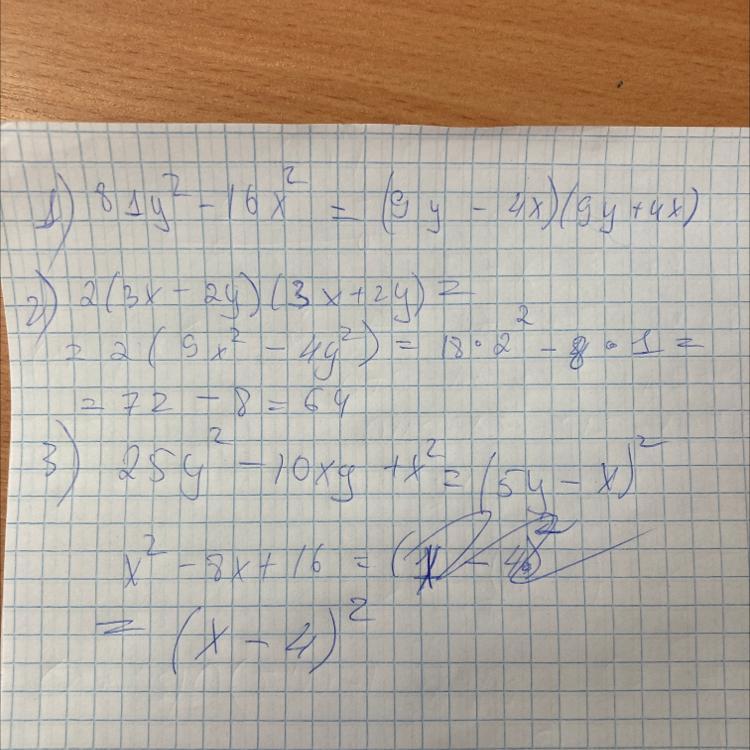 1) 81y² - 16x² = (9y - 4x)(9y+4x)
2) 2(3x - 2y)(3x+2y) =
= 2(9x² - 4y²) = 18·2² - 8·1 =
= 72 - 8 = 64
3) 25y² - 10xy + x² = (5y - x)²
x² - 8x + 16 =
= (x - 4)²